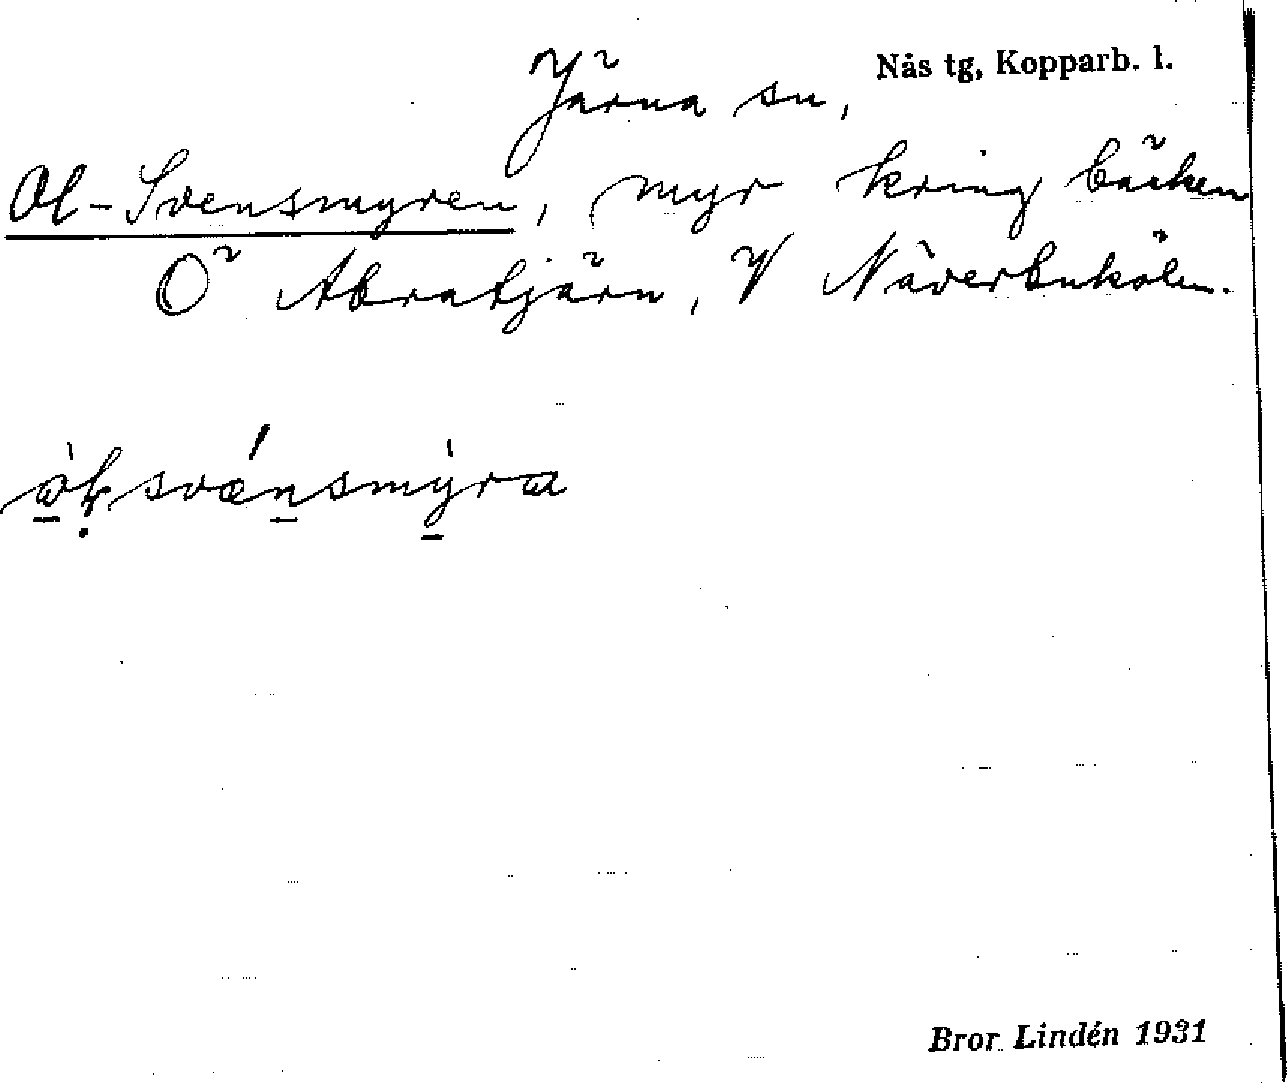 Nås tg, Kopparb. l.
Järna sn,
Ol-Svensmyren, myr kring bäcken
Ö Abratjärn, V Näverbuköln.
Bror Lindén 1931